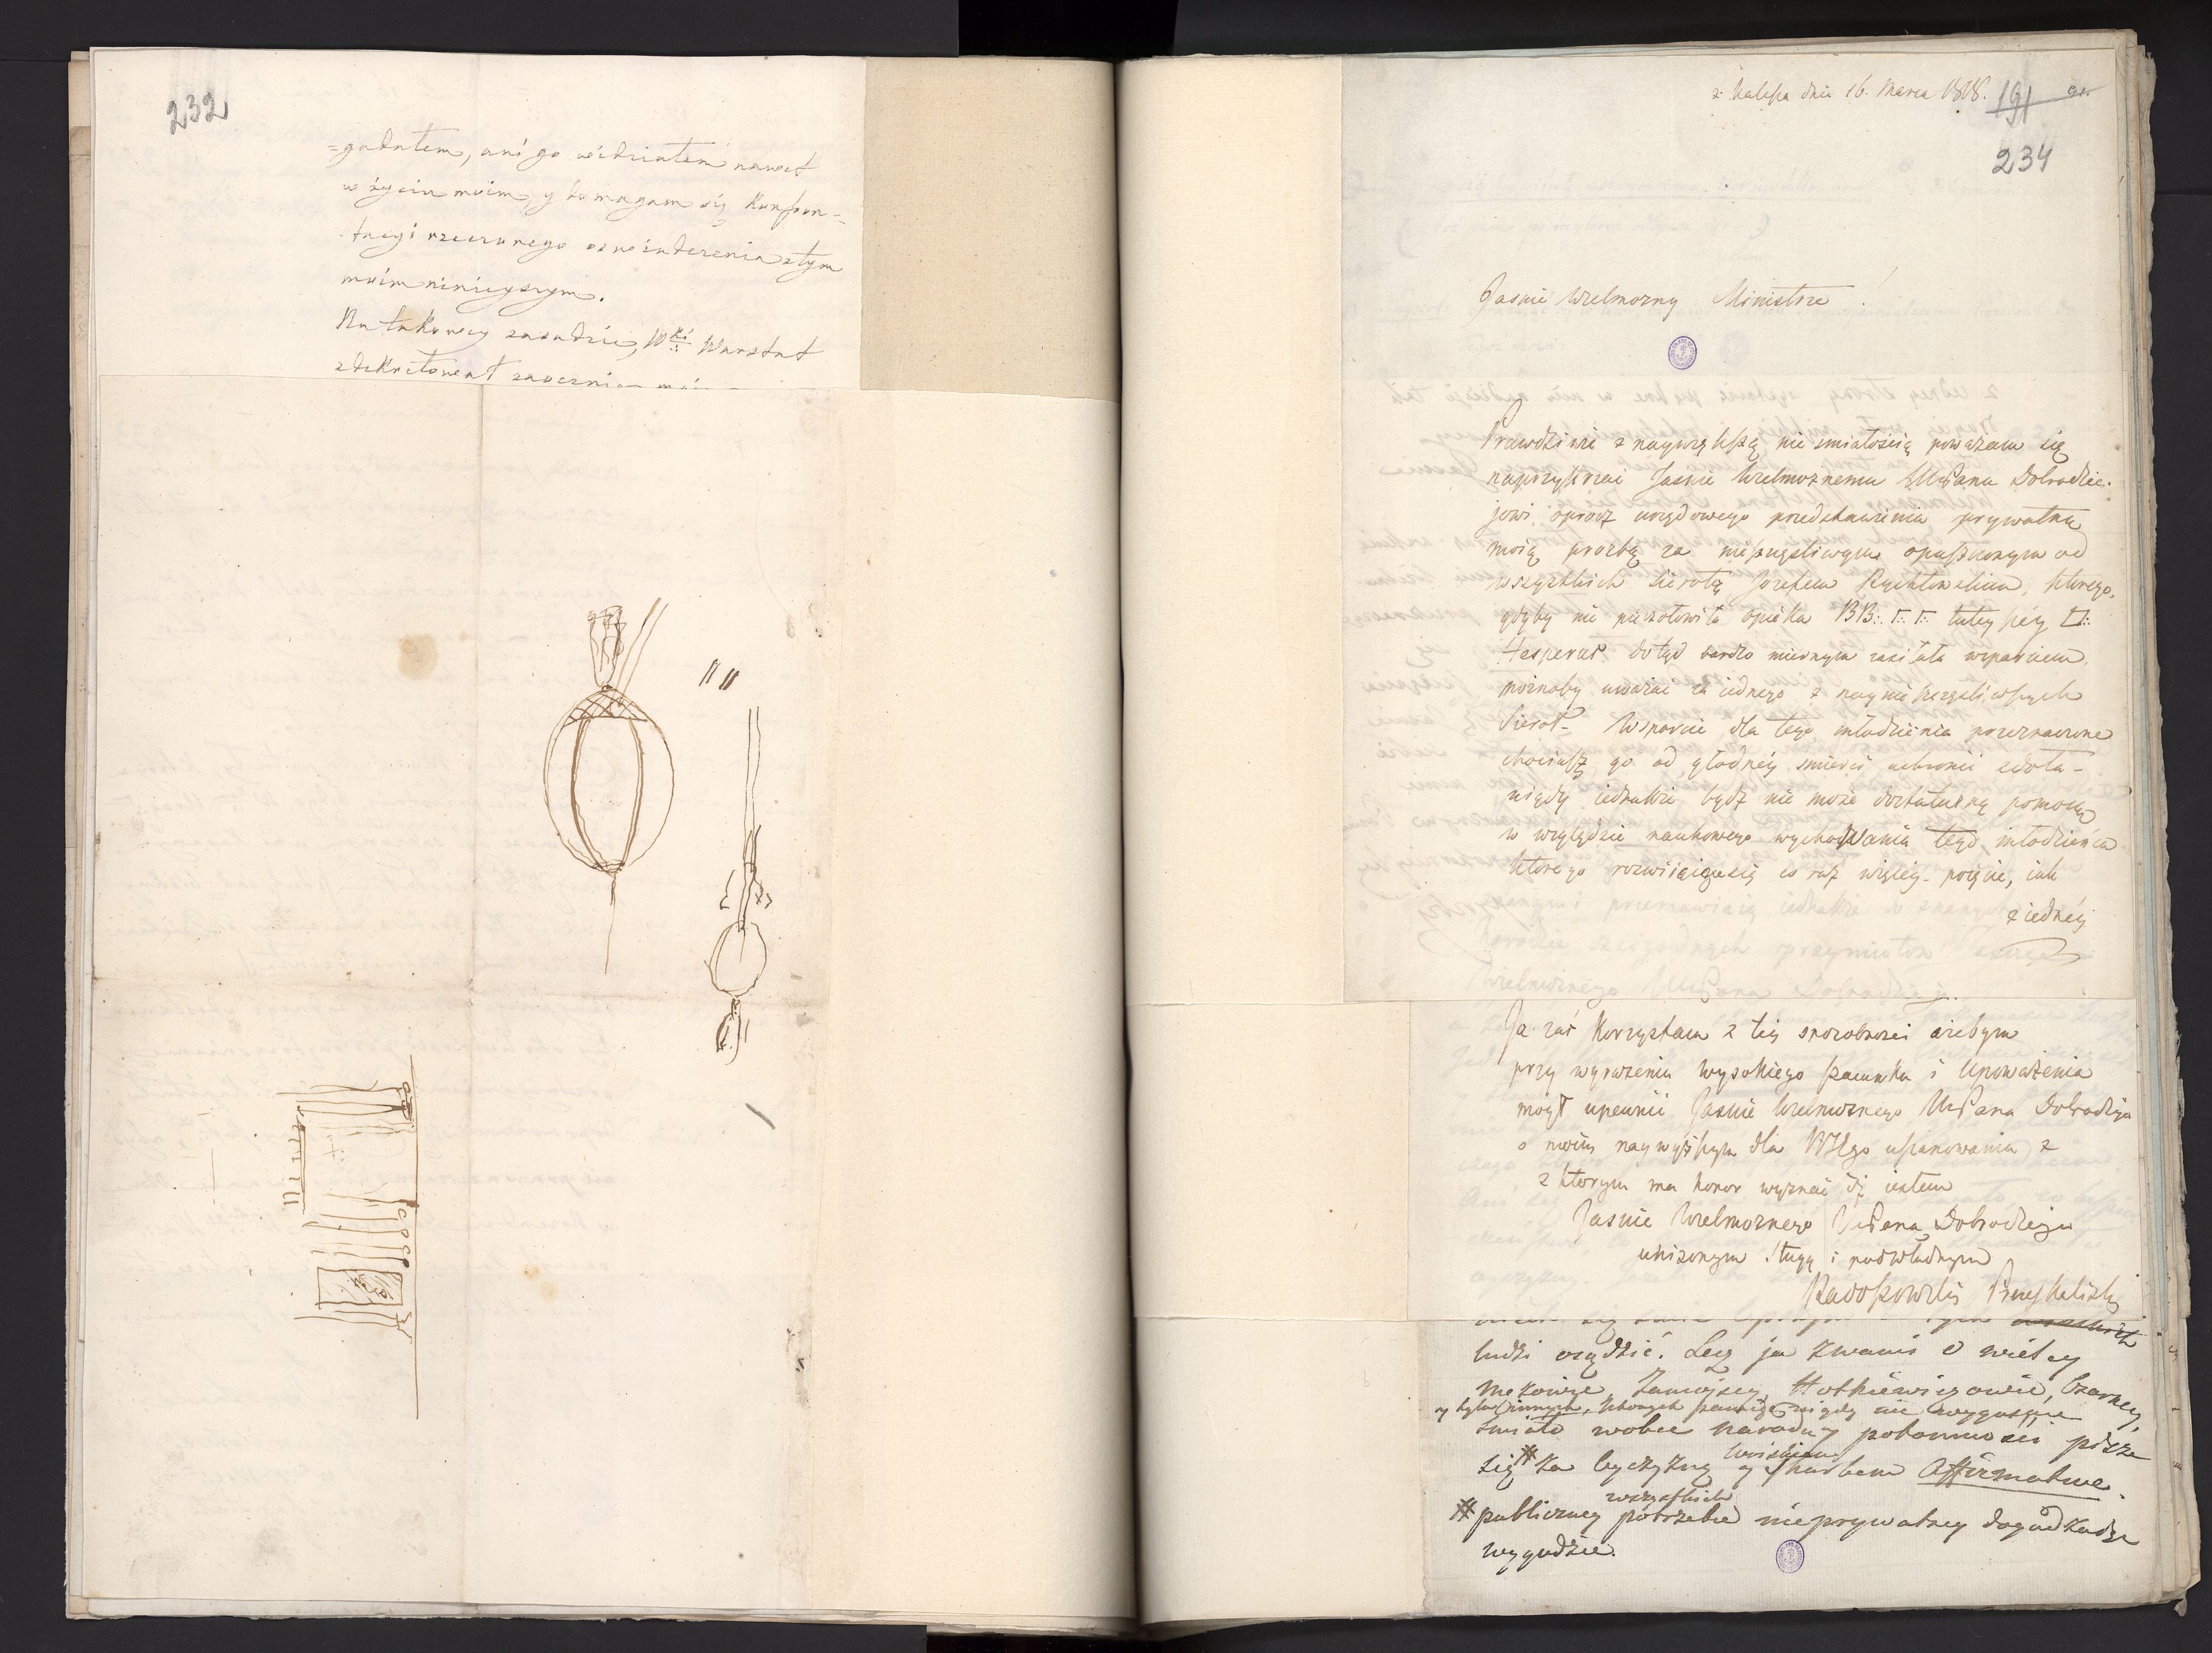 232
=gadałem, ani go widziałem nawet
w życiu moim, y domagam się Konfron=
tacyi rzeczonego oznaimienia z tym
moim ninieyszym.
Na takowey zasadzie, W Warsztat
zdekretował zaocznie
z Kalisza dnia 16. Marca 1818.
191
234
Jaśnie Wielmożny Ministrze!
Prawdziwie z naywiększą nie śmiałością poważam się
naprzykrzać Jaśnie Wielmożnemu WPanu Dobrodzie-
jowi oprocz urzędowego przedstawienia prywatną
moią prozbą za nieszczęśliwym opuszczonym od
wszystkich sierotą Jozefem Rychłowskim, ktorego,
gdyby nie pieczołowita opieka BB: tuteyszéy
Hesperus dotąd bardzo miernym zasilała wsparciem,
możnaby uważać za iednego z naynieszczęśliwszych
Sierot. Wsparcie dla tego młodzieńca przeznaczone
chociasz go od głodnéy śmierci uchronić zdoła -
nigdy iednakże bydz nie może dostateczną pomocą
w względzie naukowego wychowania tego młodzieńca
ktorego rozwiiaiące się co raz więcéy poięcie, iak
z iednéy
Ja zaś Korzystam z téy sposobności ażebym
przy wyrażeniu wysokiego szacunku i Upoważenia
mógł upewnić Jaśnie Wielmożnego WPana Dobrodzieja
o moim naywyższym dla Niego uszanowaniu z
z ktorym ma honor wyznać iż iestem
Jaśnie Wielmożnego WPana Dobrodzieja
uniżonym sługą i podwładnym
Radoszowski
ludzi osądzić. Lecz ja zwami o wielcy
Mężowie, Zamojscy, Hotkiewiczowie, Czarney
y tylu innych, ktorych pamięć nigdy nie wygaśnie
śmiało wobec narodu y potomności piszę
się # za Oyczyzną y skarbem Affirmative.
Woiskiem
# publiczney potrzebie nieprywatney dogadzając
wszystkich
wygodzie.